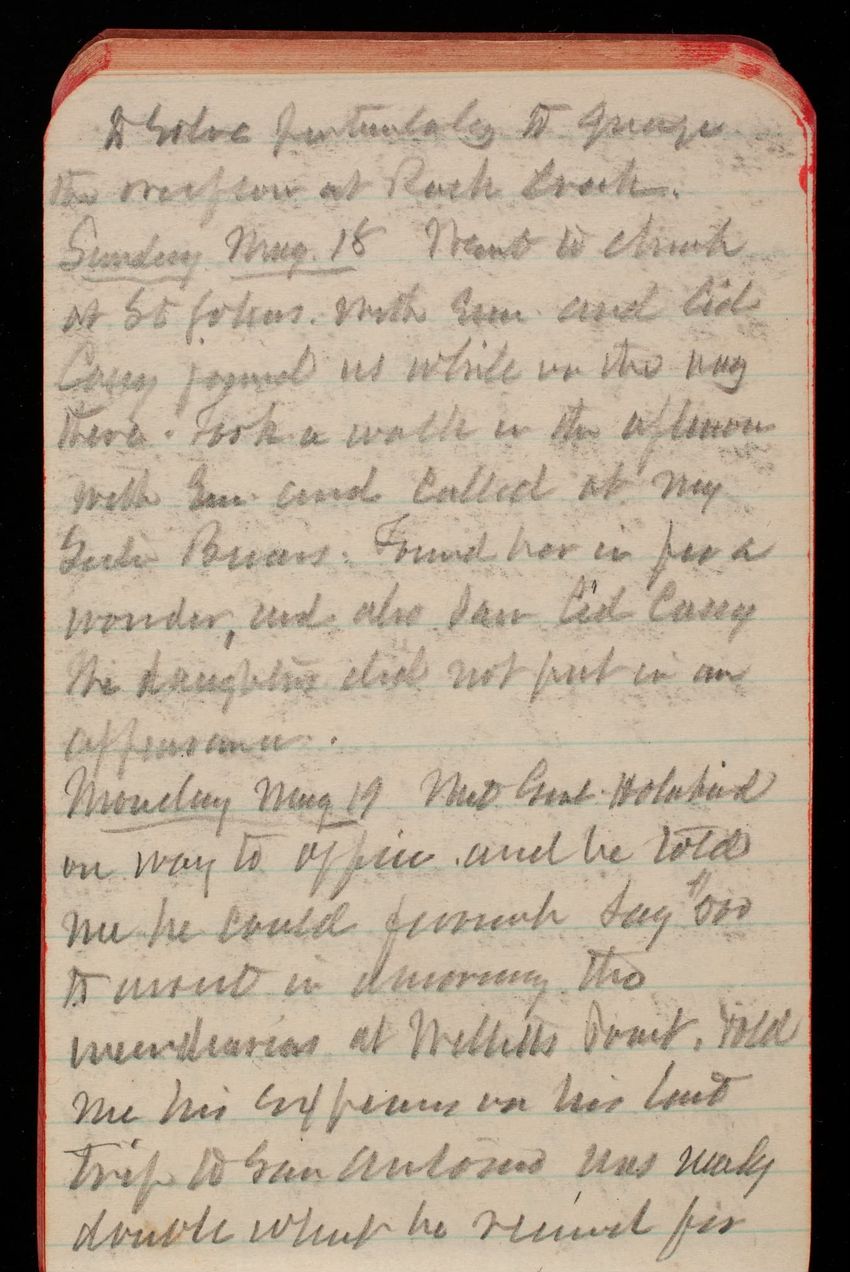 to solve particularly to gauge
the overflow at Rock Creek.
Sunday May. 18 Went to church
at St Johns. with Em and Cid
Casey joined us while on the way
there. Took a walk in the afternoon
with Em and called at my
Brians. Found her in for a
wonder, and also saw Cid Casey
The daughters did not put in an
appearance.
Monday May 19 Met Genl Holabird
on way to office and he told
me he could furnish say $500
to assist in removing the
at Willetts Point. Told
me his expenses on his last
trip to San Antonio was nearly
double what he received for